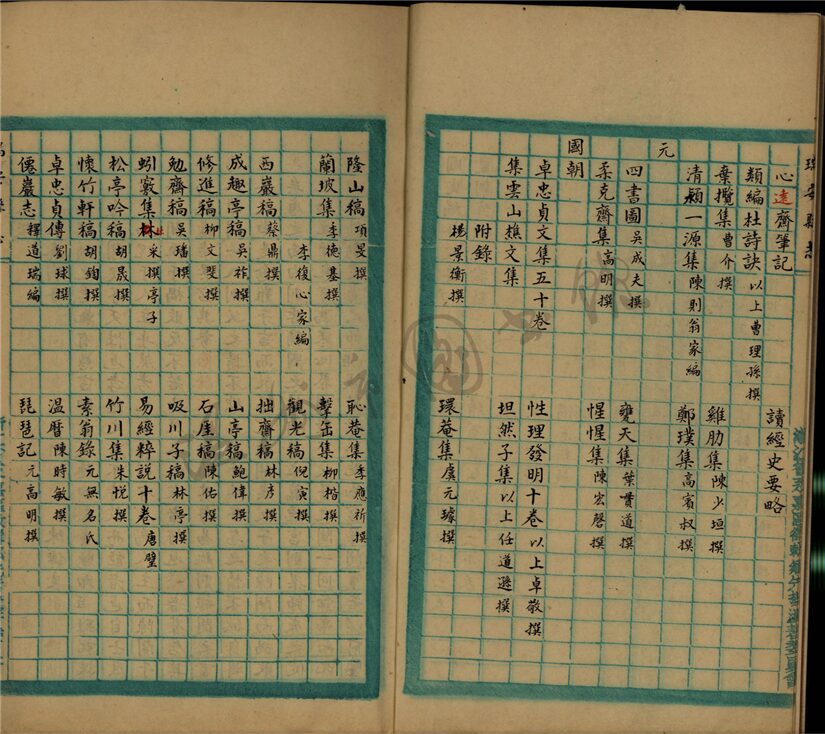 瑞安縣志
心遠齋筆記　讀經史要略
類編杜詩訣以上曹理孫撰
棄攬集曹介撰　雞肋集陳少垣撰
清潁一源集陳則翁家編　鄭璞集高賓叔撰
元
四書圖吳成夫撰　甕天集葉貫道撰
柔克齋集高明撰　惺惺集陳宏磬撰
國朝
卓忠貞文集五十卷　性理發明十卷以上卓敬撰
集雲山樵文集　坦然子集以上任道遜撰
附錄
楊景衡撰　環菴集虞元璩撰
隆山稿項旻撰　恥菴集季應祈撰
蘭坡集李德基撰　擊缶集柳楷撰
李復心家編　觀光稿倪寅撰
西巖稿蔡鼎撰　拙齋稿林彥撰
成趣亭稿吳祚撰　山亭稿鮑偉撰
修進稿柳文斐撰　石崖稿陳佑撰
勉齋稿吳璠撰　吸川子稿林亭撰
蚓竅集林采撰亭子　易經粹說十卷唐璧
松亭吟稿胡晟撰　竹川集朱悅撰
懷竹軒稿胡鉤撰　素翁錄元無名氏
卓忠貞傳劉球撰　溫曆陳時敏撰
僊巖志釋道瑞編　琵琶記元高明撰